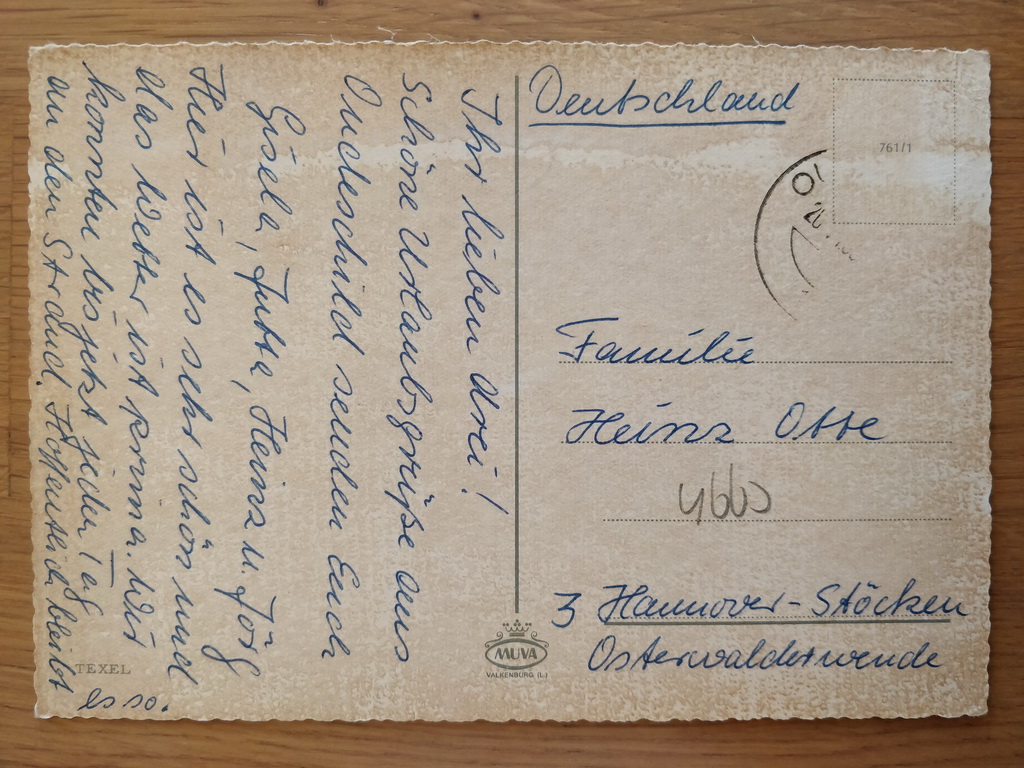 Ihr lieben drei!
Schöne Urlaubsgrüße aus
Oudeschild senden Euch
Gisela, Jutta, Heinz u. Jörg
Hier ist es sehr schön und
das Wetter ist prima. Wir
konnten bis jetzt jeden Tag
an den Strand. Hoffentlich bleibt
es so.
TEXEL
MUVA
VALKENBURG (L.)
Deutschland
761/1
Familie
Heinz Otte
3 Hannover-Stöcken
Osterwalderwende